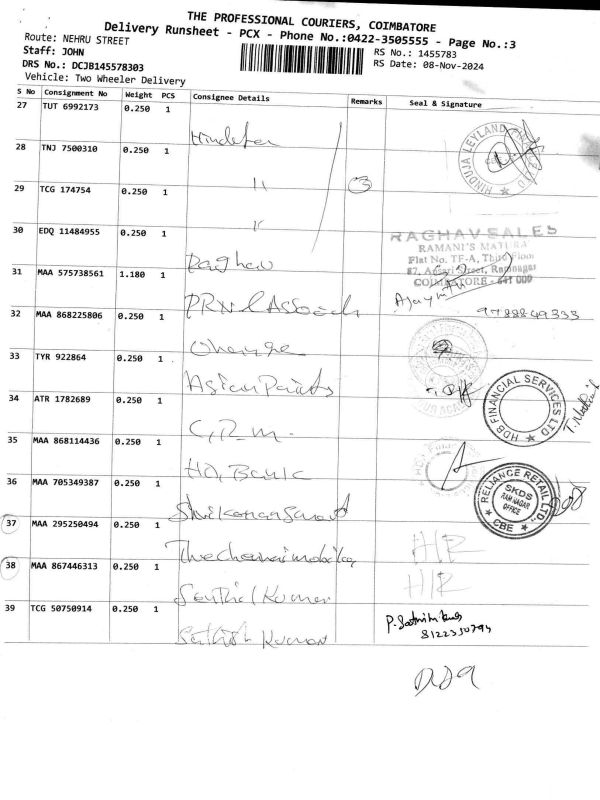 THE PROFESSIONAL COURIERS, COIMBATORE
Delivery Runsheet - PCX - Phone No.:0422-3505555 - Page No.:3
Route: NEHRU STREET
RS No.: 1455783
Staff: JOHN
RS Date: 08-Nov-2024
DRS No.: DCJB145578303
Vehicle: Two Wheeler Delivery
S No Consignment No Weight PCS Consignee Details Remarks Seal & Signature
27 TUT 6992173 0.250 1
HINDUJA LEYLAND
28 TNJ 7500310 0.250 1 "
29 TCG 174754 0.250 1 " 3
30 EDQ 11484955 0.250 1 Raghav
RAGHAV SALES
RAMANI'S MAYURA
Flat No. TF-A, Third Floor
87, Ansari Street, Ramnagar
COIMBATORE - 641 009
31 MAA 575738561 1.180 1
9788849333
32 MAA 868225806 0.250 1
33 TYR 922864 0.250 1 Asian Paints
34 ATR 1782689 0.250 1 C.R.m.
HDB FINANCIAL SERVICES LTD
35 MAA 868114436 0.250 1
36 MAA 705349387 0.250 1
RELIANCE RETAIL LTD.
SKDS
RAM NAGAR
OFFICE
CBE
37 MAA 295250494 0.250 1 H/R
38 MAA 867446313 0.250 1 Senthil Kumar H/R
39 TCG 50750914 0.250 1 Sathish Kumar